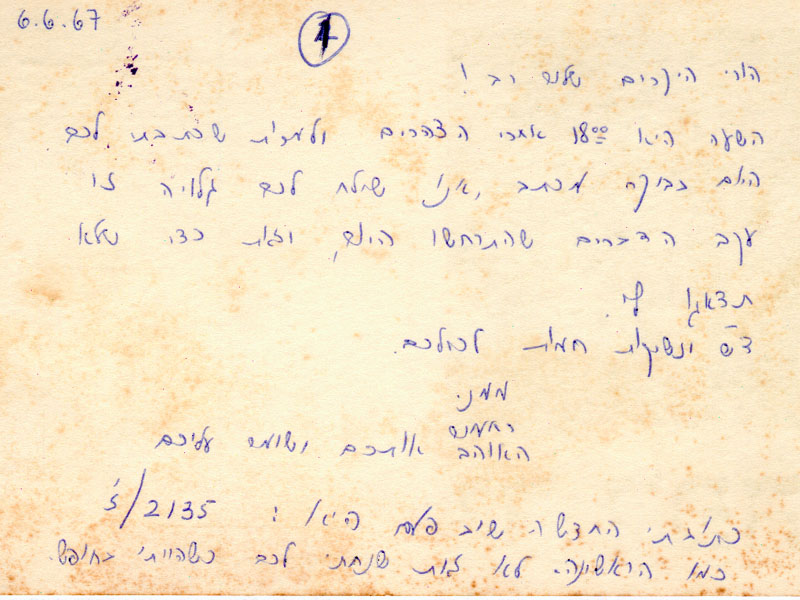 6.6.67
1
הורי היקרים שלום רב!
השעה היא 18⁰⁰ אחרי הצהרים ולמרות שכתבתי לכם
היום בבוקר מכתב, אני שולח לכם גלויה זו
עקב הדברים שהתרחשו היום, וזאת כדי שלא
תדאגו לי.
ד"ש ונשיקות חמות לכולכם.
ממני.
האוהב אותכם ושומר עליכם
כתובתי החדשה שוב פעם היא: 2135/ג'
כמו הראשונה. לא זאת שנתתי לכם כשהייתי בחופש.